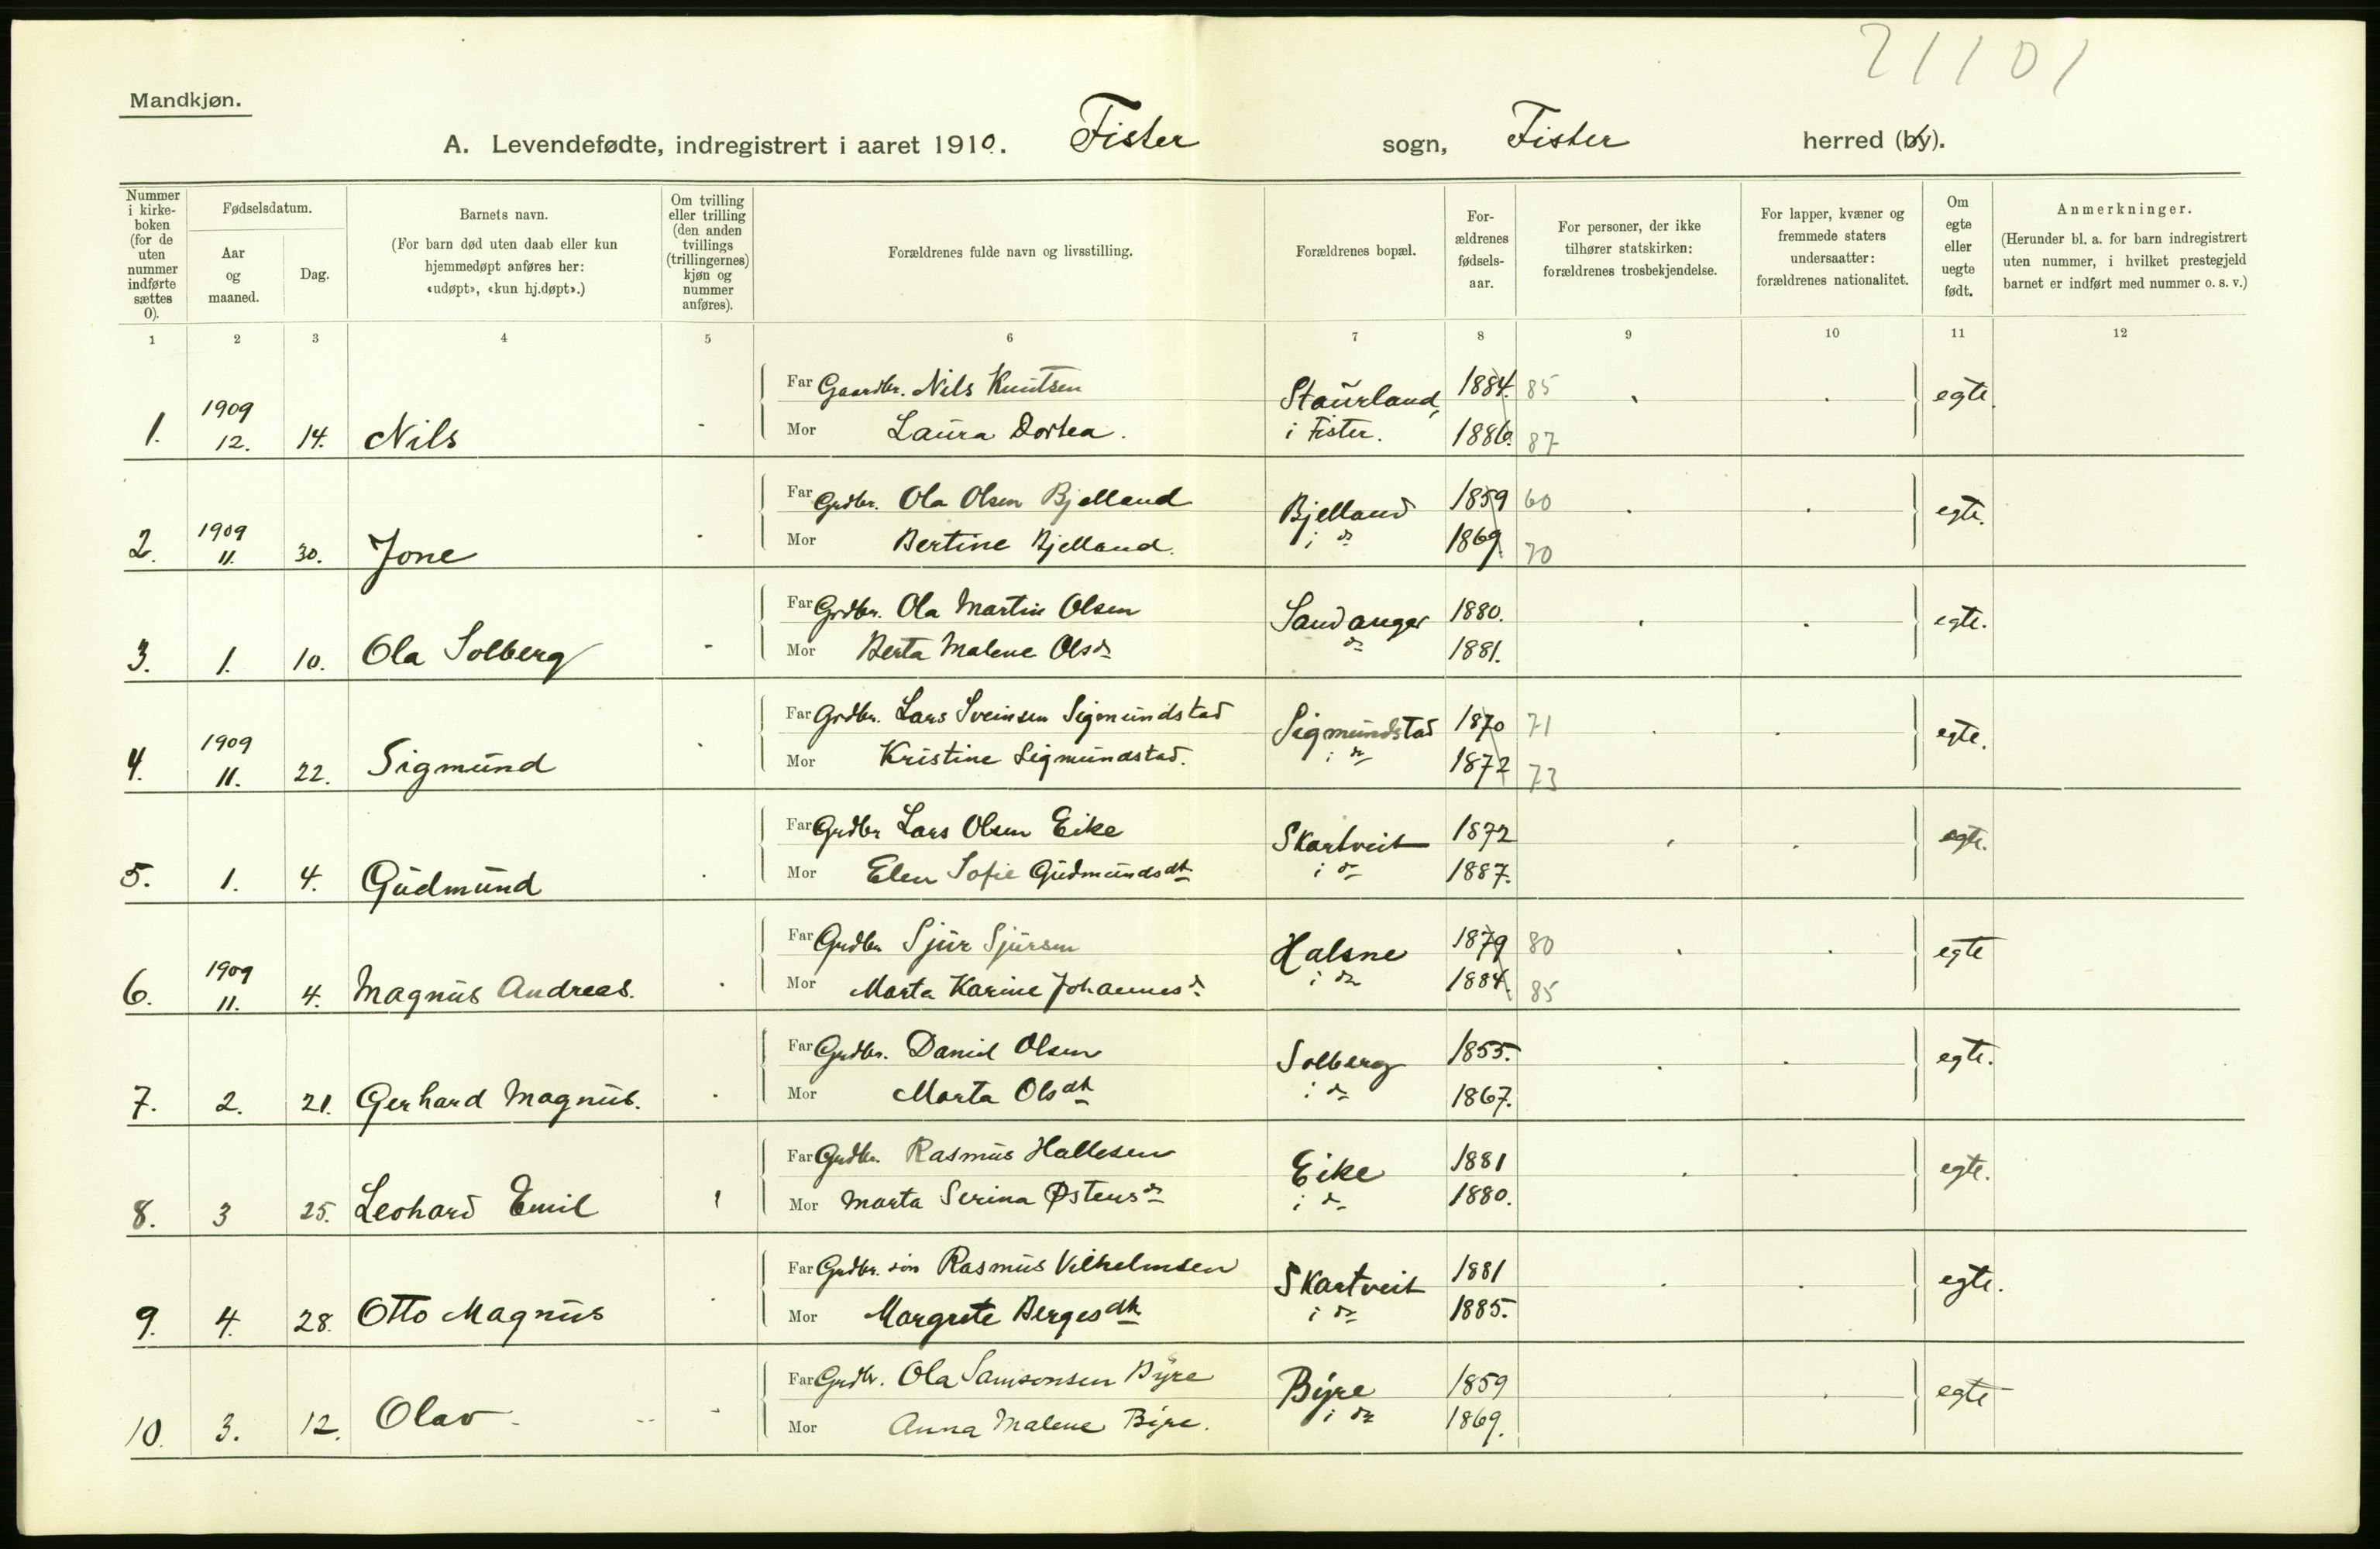 21101
Mandkjøn.
A. Levendefødte, indregistrert i aaret 1910. Fister sogn, Fister herred (by).
Nummer i kirke-boken (for de uten nummer indførte sættes 0).
Fødselsdatum.
Aar og maaned.
Dag.
Barnets navn.
(For barn død uten daab eller kun hjemmedøpt anføres her: «udøpt», «kun hj.døpt».)
Om tvilling eller trilling (den anden tvillings (trillingernes) kjøn og nummer anføres).
Forældrenes fulde navn og livsstilling.
Forældrenes bopæl.
For-ældrenes fødsels-aar.
For personer, der ikke tilhører statskirken: forældrenes trosbekjendelse.
For lapper, kvæner og fremmede staters undersaatter: forældrenes nationalitet.
Om egte eller uegte født.
Anmerkninger.
(Herunder bl. a. for barn indregistrert uten nummer, i hvilket prestegjeld barnet er indført med nummer o. s. v.)
1 2 3 4 5 6 7 8 9 10 11 12
Far Gaardbr. Nils Knutsen Staurland, 1884. 85
1. 1909 12. 14. Nils - Mor Laura Dortea. i Fister. 1886. 87 egte.
Far Grdbr. Ola Olsen Bjelland Bjelland 1859 60
2. 1909 11. 30. Jone - Mor Bertine Bjelland. i do 1869 70 egte.
Far Grdbr. Ola Martin Olsen Sandanger 1880.
3. 1. 10. Ola Solberg - Mor Berta Malene Olsd. do 1881. egte.
Far Grdbr. Lars Sveinsen Sigmundstad Sigmundstad 1870 71
4. 1909 11. 22. Sigmund Mor Kristine Sigmundstad. i do 1872 73 egte.
Far Grdbr Lars Olsen Eike Skartveit 1872
5. 1. 4. Gudmund Mor Elen Sofie Gudmundsdt i do 1887. egte.
Far Grdbr Sjur Sjursen Halsne 1879 80
6. 1909 11. 4. Magnus Andreas. Mor Marta Karine Johannesd. i do 1884. 85 egte
Far Grdbr. Daniel Olsen Solberg 1855.
7. 2. 21. Gerhard Magnus. Mor Marta Olsdt i do 1867. egte.
Far Grdbr. Rasmus Hallesen Eike 1881
8. 3 25. Leohard Emil Mor Marta Serina Østensd i do 1880. egte.
Far Grdbr. søn Rasmus Vilhelmsen Skartveit 1881
9. 4. 28. Otto Magnus Mor Margrete Bergesdt i do 1885. egte.
Far Grdbr. Ola Samsonsen Byre Byre 1859
10. 3. 12. Olav - Mor Anna Malene Byre. i do 1869. egte